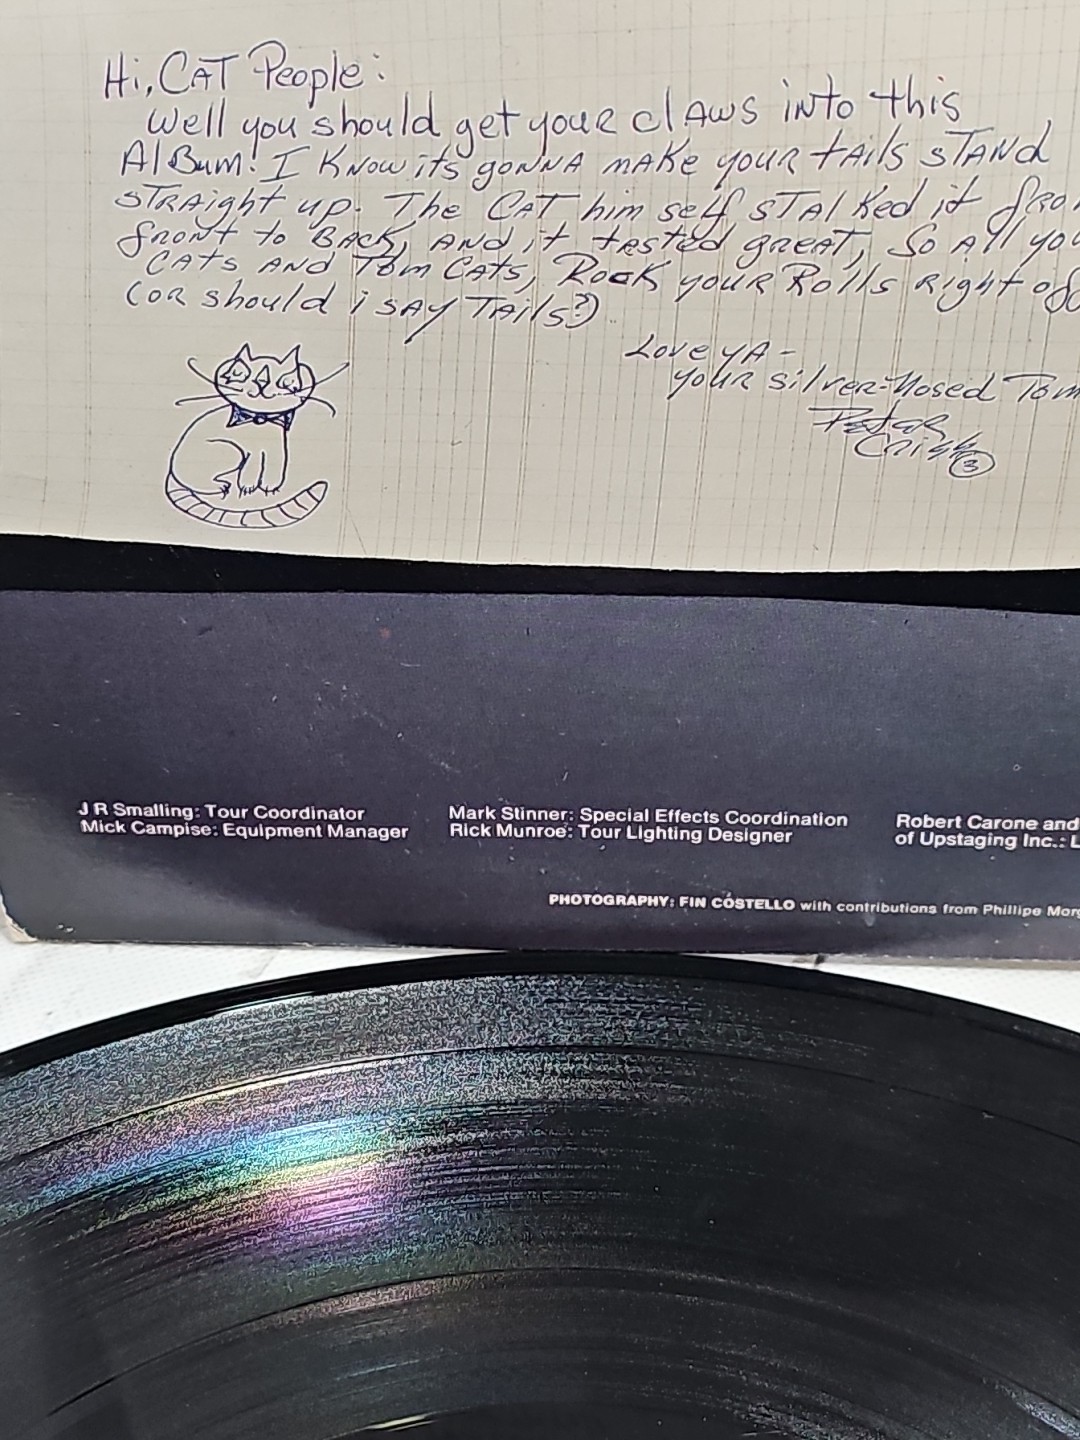 Hi, CAT People:
Well you should get your clAws into this
AlBum! I Know its gonna make your tails STAND
STRAight up. The CAT him self STAlKed it
front to BACK, AND it tasted great, So All
CAts AND Tom CAts, Rock youR Rolls Right
(or should i sAy TAils?)
Love yA -
youR silver-Nosed Tom
Peter
Criss
3
J R Smalling: Tour Coordinator
Mick Campise: Equipment Manager
Mark Stinner: Special Effects Coordination
Rick Munroe: Tour Lighting Designer
Robert Carone and
of Upstaging Inc.:
PHOTOGRAPHY: FIN COSTELLO with contributions from Phillipe